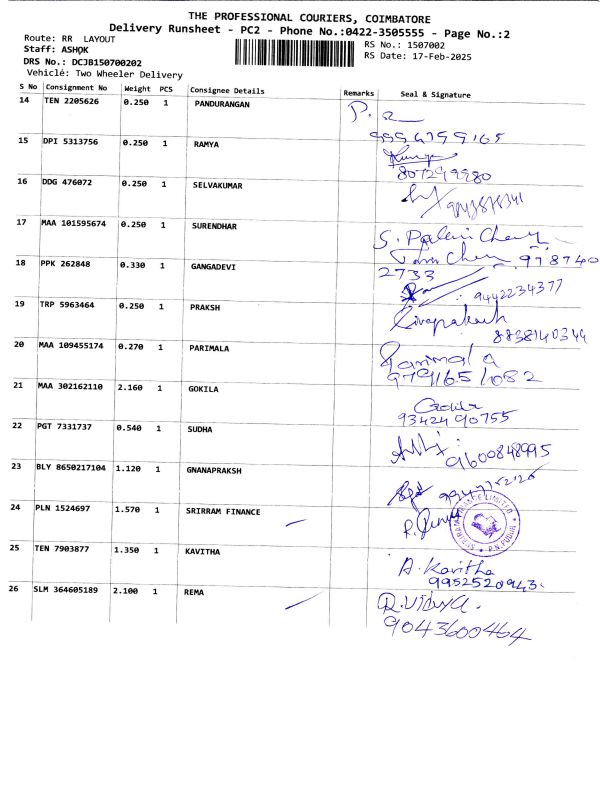 THE PROFESSIONAL COURIERS, COIMBATORE
Delivery Runsheet - PC2 - Phone No.:0422-3505555 - Page No.:2
Route: RR LAYOUT
RS No.: 1507002
Staff: ASHOK
RS Date: 17-Feb-2025
DRS No.: DCJB150700202
Vehicle: Two Wheeler Delivery
S No Consignment No Weight PCS Consignee Details Remarks Seal & Signature
14 TEN 2205626 0.250 1 PANDURANGAN P.
9994799165
15 DPI 5313756 0.250 1 RAMYA
807299980
16 DDG 476072 0.250 1 SELVAKUMAR
17 MAA 101595674 0.250 1 SURENDHAR
S.
18 PPK 262848 0.330 1 GANGADEVI
978740
2733
9442234377
19 TRP 5963464 0.250 1 PRAKSH
Sivaprakash
8838140344
20 MAA 109455174 0.270 1 PARIMALA
Parimala
9791651082
21 MAA 302162110 2.160 1 GOKILA
Gokila
9342490755
22 PGT 7331737 0.540 1 SUDHA
9600848995
23 BLY 8650217104 1.120 1 GNANAPRAKSH
24 PLN 1524697 1.570 1 SRIRRAM FINANCE
25 TEN 7903877 1.350 1 KAVITHA
A. Kavitha
9952520943.
26 SLM 364605189 2.100 1 REMA
R. Vidya.
9043600464